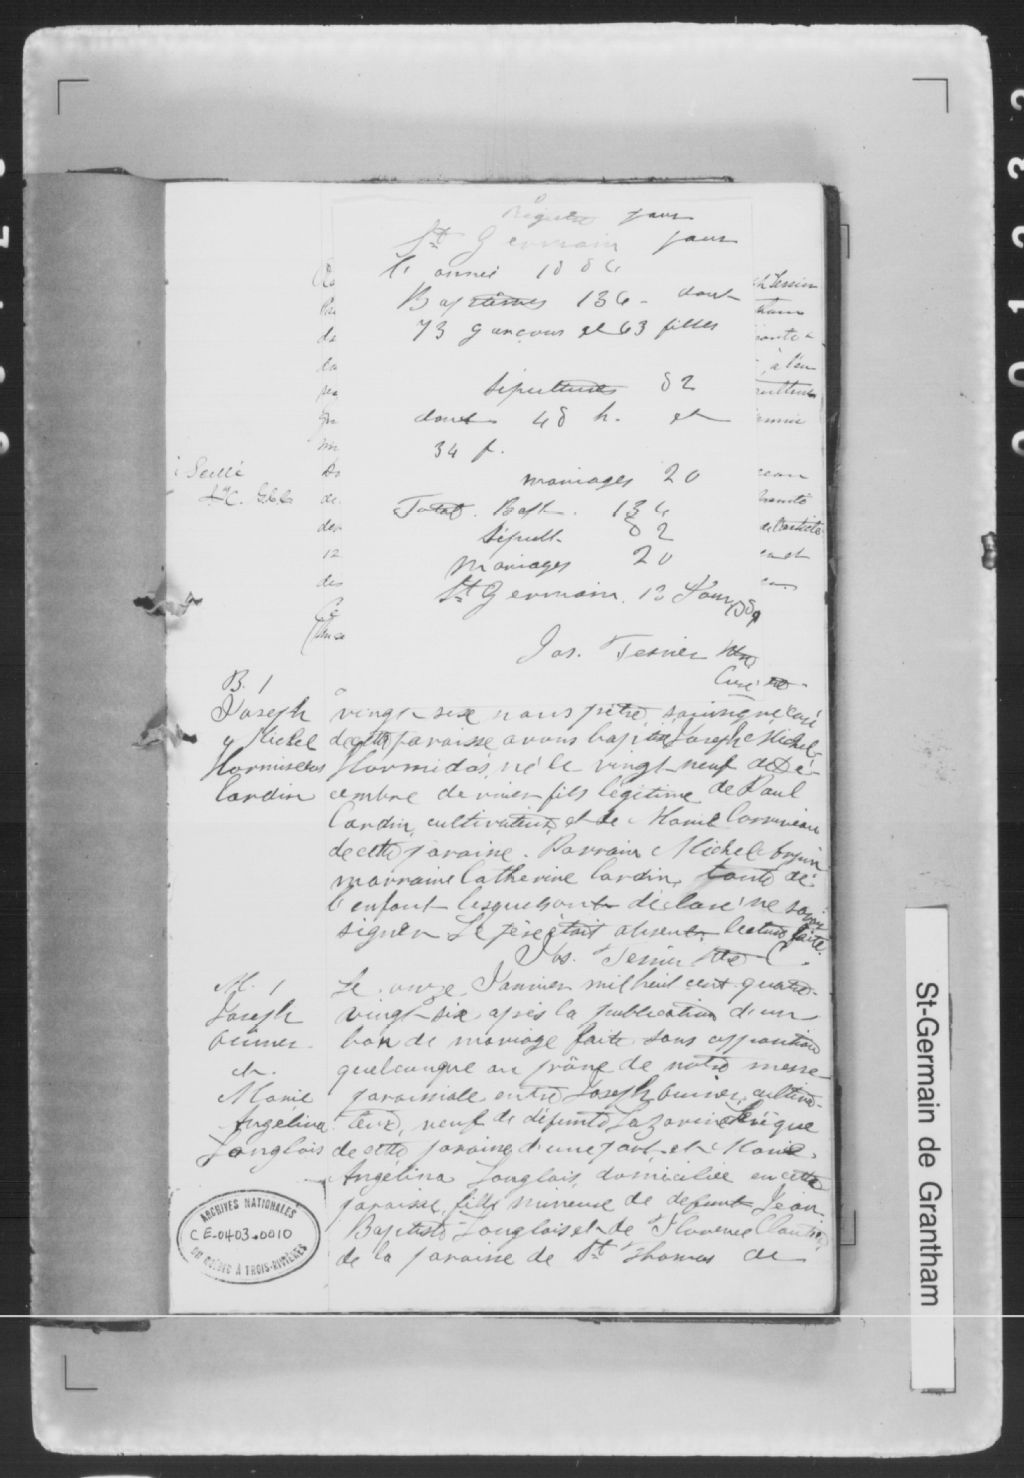 Régistre pour
St Germain pour
l'année 1886
Baptêmes 136 - dont
73 garçons et 63 filles
Sépultures 82
dont 48 h. et
34 f.
mariages 20
Total. Bapt. 136
Sépult. 82
Mariages 20
St Germain. 13 Janv
Jos. Tessier Ptre
Curé
B. 1
Joseph
Michel
Hormisdas
Cardin
vingt-six nous prêtre, soussigné curé
de cette paroisse avons baptisé Joseph Michel
Hormidas, né le vingt-neuf de Dé-
cembre dernier fils légitime de Paul
Cardin, cultivateur, et de Marie
de cette paroisse. Parrain Michel
marraine Catherine Cardin, tante de
l'enfant lesquels ont déclaré ne savoir
signer. Le père était absent. Lecture faite.
Jos. Tessier Ptre C.
M. 1
Joseph
et
Marie
Angélina
Langlois
Le onze Janvier mil huit cent quatre-
vingt-six après la publication d'un
ban de mariage faite sans opposition
quelconque au prône de notre messe
paroissiale entre Joseph cultiva-
teur, veuf de défunte Lazarine Levêque
de cette paroisse d'une part, et Marie
Angélina Langlois, domiciliée en cette
paroisse, fille mineure de defunt Jean-
Baptiste Langlois et de Florence
de la paroisse de St Thomas de
ARCHIVES NATIONALES
CE-0403.0010
DU QUÉBEC À TROIS-RIVIÈRES
St-Germain de Grantham